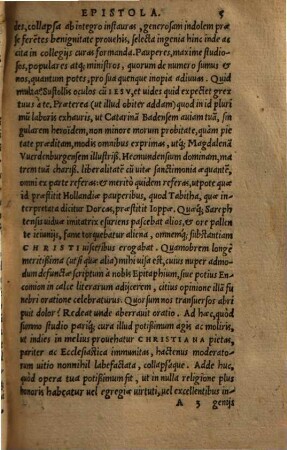 EPISTOLA. 5
des, collapsa ab integro instauras, generosam indolem præ
se ferẽtes benignitate prouehis, selecta ingenia hinc inde ac
cita in collegijs curas formanda. Pauperes, maxime studio-
sos, populares atq; ministros, quorum de numero sumus e
nos, quantum potes, pro sua quenque inopia adiuuas. Quid
multa? Sustollis oculos cũ IESV, et uides quid expectet grex
tuus à te. Præterea (ut illud obiter addam) quod in id pluri
mũ laboris exhauris, ut Catarinã Badensem auiam tuã, sin
gularem heroidem, non minore morum probitate, quàm pie
tate præditam, modis omnibus exprimas, utq; Magdalenã
Vuerdenburgensem illustriss. Hermundensium dominam, ma
trem tuã chariss. liberalitatẽ cũ uitæ sanctimonia æquantẽ,
omni ex parte referas: & meritò quidem referas, utpote quæ
id præstitit Hollandiæ pauperibus, quod Tabitha, quæ in-
terpretata dicitur Dorcas, præstitit Ioppæ. Quæq; Sareph
tensi uiduæ imitatrix esuriens pascebat alios, & ore pallen
te ieiunijs, fame torquebatur aliena, omnemq; substantiam
CHRISTI uisceribus erogabat. Quamobrem longè
meritissima (ut si quæ alia) mihi uisa est, cuius nuper admo-
dum defunctæ scriptum à nobis Epitaphium, siue potius En-
comion in calce literarum adijcerem, citius opinione illã fu
nebri oratione celebraturus. Quorsum nos transuersos abri
puit dolor? Redeat unde aberrauit oratio. Ad hæc, quòd
summo studio pariq; cura illud potissimùm agis ac moliris,
ut indies in melius prouehatur CHRISTIANA pietas,
pariter ac Ecclesiastica immunitas, hactenus moderato-
rum uitio nonnihil labefactata, collapsáque. Adde huc,
quòd opera tua potissimùm fit, ut in nulla religione plus
honoris habeatur uel egregiæ uirtuti, uel excellentibus in-
A 3 genijs